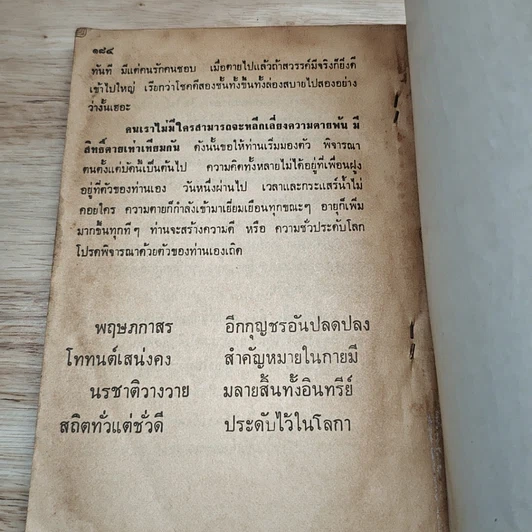 ๑๘๔
ทันที มีแต่คนรักคนชอบ เมื่อตายไปแล้วถ้าสวรรค์มีจริงก็ยิ่งดี
เข้าไปใหญ่ เรียกว่าโชคดีสองชั้นทั้งขึ้นทั้งล่องสบายไปสองอย่าง
ว่างั้นเฮอะ
คนเราไม่มีใครสามารถจะหลีกเลี่ยงความตายพ้น มี
สิทธิ์ตายเท่าเทียมกัน ดังนั้นขอให้ท่านเริ่มมองตัว พิจารณา
ตนตั้งแต่บัดนี้เป็นต้นไป ความคิดทั้งหลายไม่ได้อยู่ที่เพื่อนฝูง
อยู่ที่ตัวของท่านเอง วันหนึ่งผ่านไป เวลาและกระแสร์น้ำไม่
คอยใคร ความตายก็กำลังเข้ามาเยี่ยมเยือนทุกขณะๆ อายุก็เพิ่ม
มากขึ้นทุกทีๆ ท่านจะสร้างความดี หรือ ความชั่วประดับโลก
โปรดพิจารณาด้วยตัวของท่านเองเถิด
พฤษภกาสร อีกกุญชรอันปลดปลง
โททนต์เสน่งคง สำคัญหมายในกายมี
นรชาติวางวาย มลายสิ้นทั้งอินทรีย์
สถิตทั่วแต่ชั่วดี ประดับไว้ในโลกา